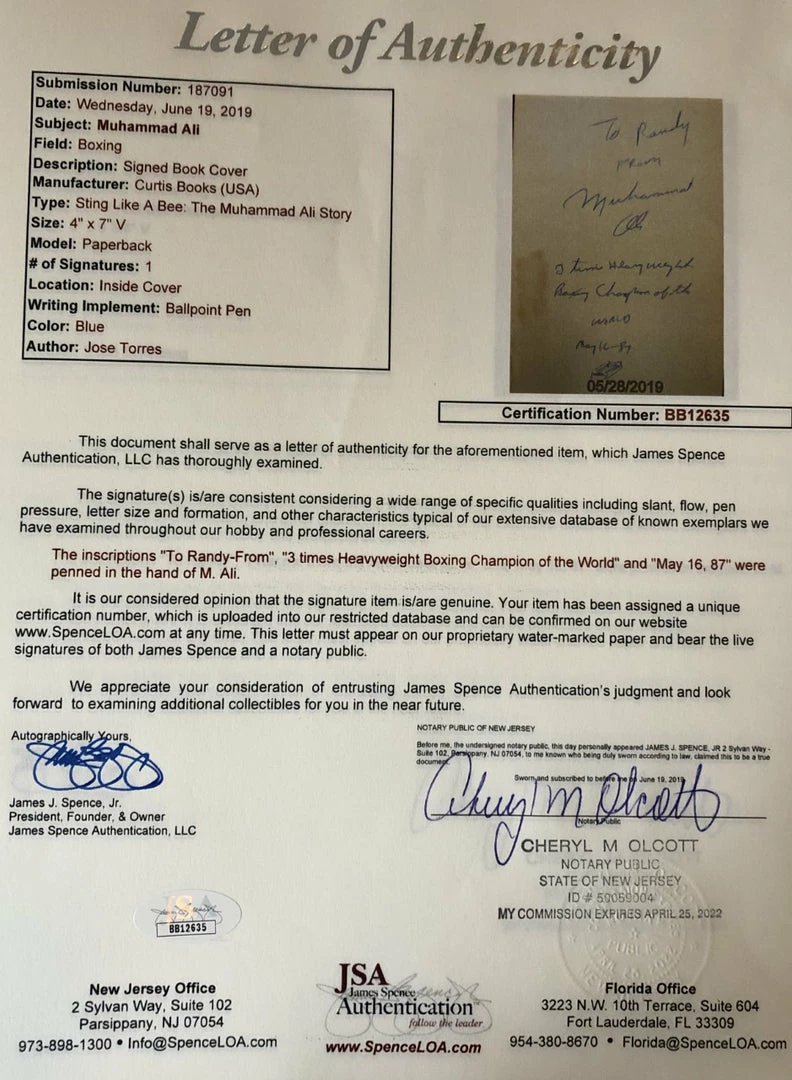 Letter of Authenticity
Submission Number: 187091
Date: Wednesday, June 19, 2019
Subject: Muhammad Ali
Field: Boxing
Description: Signed Book Cover
Manufacturer: Curtis Books (USA)
Type: Sting Like A Bee: The Muhammad Ali Story
Size: 4" x 7" V
Model: Paperback
# of Signatures: 1
Location: Inside Cover
Writing Implement: Ballpoint Pen
Color: Blue
Author: Jose Torres
To Randy
From
Muhammad
Ali
3 time Heavyweight
Boxing Champion of the
World
May 16-87
05/28/2019
Certification Number: BB12635
This document shall serve as a letter of authenticity for the aforementioned item, which James Spence
Authentication, LLC has thoroughly examined.
The signature(s) is/are consistent considering a wide range of specific qualities including slant, flow, pen
pressure, letter size and formation, and other characteristics typical of our extensive database of known exemplars we
have examined throughout our hobby and professional careers.
The inscriptions "To Randy-From", "3 times Heavyweight Boxing Champion of the World" and "May 16, 87" were
penned in the hand of M. Ali.
It is our considered opinion that the signature item is/are genuine. Your item has been assigned a unique
certification number, which is uploaded into our restricted database and can be confirmed on our website
www.SpenceLOA.com at any time. This letter must appear on our proprietary water-marked paper and bear the live
signatures of both James Spence and a notary public.
We appreciate your consideration of entrusting James Spence Authentication's judgment and look
forward to examining additional collectibles for you in the near future.
Autographically Yours,
James J. Spence, Jr.
President, Founder, & Owner
James Spence Authentication, LLC
NOTARY PUBLIC OF NEW JERSEY
Before me, the undersigned notary public, this day personally appeared JAMES J. SPENCE, JR 2 Sylvan Way -
Suite 102, Parsippany, NJ 07054, to me known who being duly sworn according to law, claimed this to be a true
document.
Sworn and subscribed to before me on June 19, 2019
Cheryl M Olcott
Notary Public
CHERYL M OLCOTT
NOTARY PUBLIC
STATE OF NEW JERSEY
ID # 50059004
MY COMMISSION EXPIRES APRIL 25, 2022
JSA
BB12635
New Jersey Office
2 Sylvan Way, Suite 102
Parsippany, NJ 07054
973-898-1300 • Info@SpenceLOA.com
JSA
James Spence
Authentication
follow the leader
www.SpenceLOA.com
Florida Office
3223 N.W. 10th Terrace, Suite 604
Fort Lauderdale, FL 33309
954-380-8670 • Florida@SpenceLOA.com